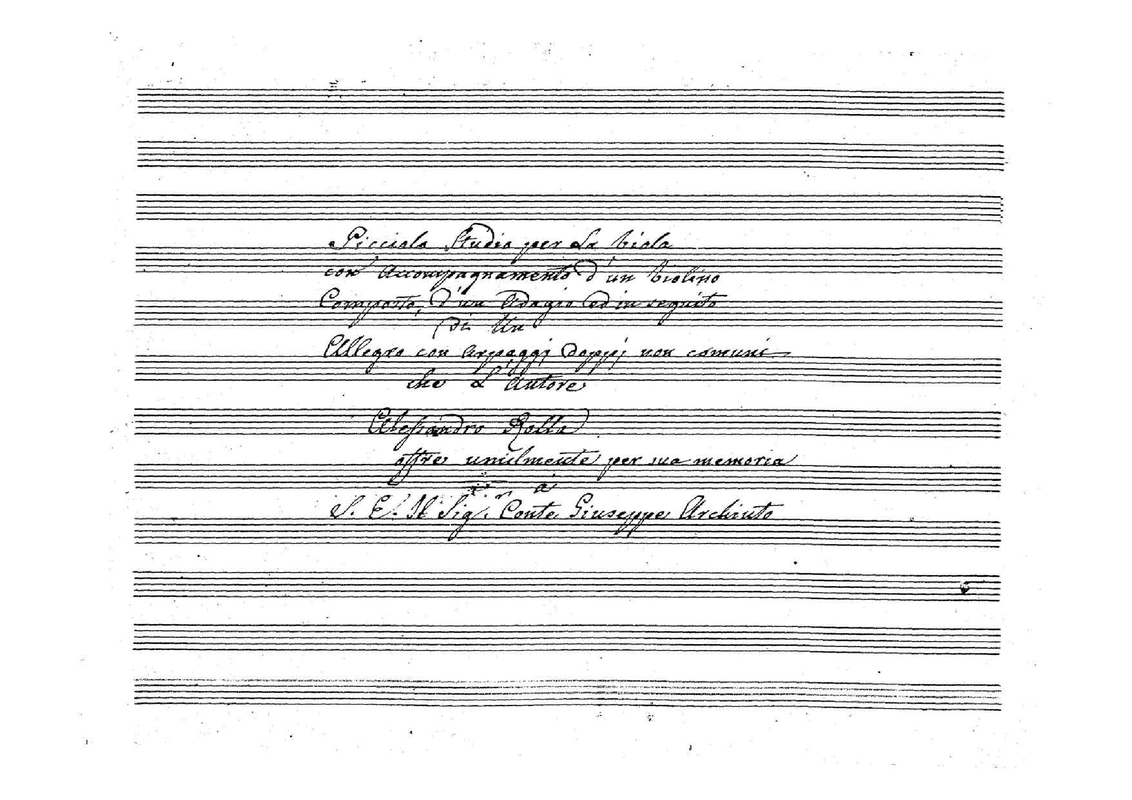 Picciola Studio per La Viola
con Accompagnamento d'un Violino
Composto, d'un Adagio ed in seguito
di Un
Allegro con Arpeggj doppj non comuni
che L'Autore
Alessandro Rolla
offre umilmente per sua memoria
à
S. E. Il Sig.r Conte Giuseppe Archinto